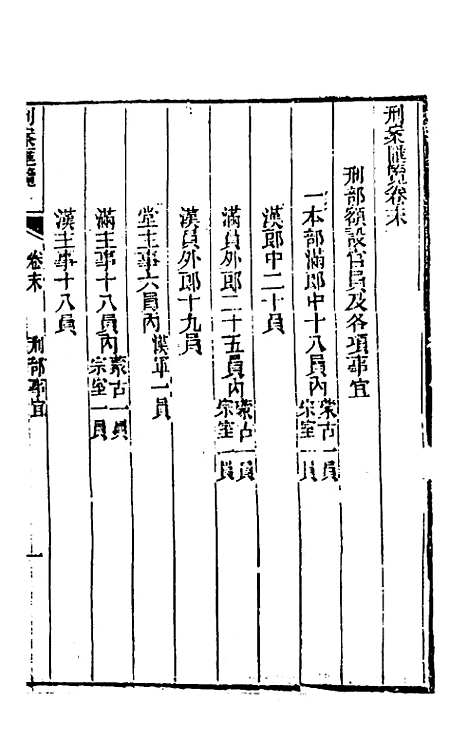 刑案匯覽卷末
刑部額設官員及各項事宜
一本部滿郎中十八員內蒙古一員宗室一員
漢郎中二十員
滿員外郎二十五員內蒙古一員宗室一員
漢員外郎十九員
堂主事六員內漢軍一員
滿主事十八員內蒙古一員宗室一員
漢主事十八員
刑案匯覽 卷末 刑部事宜